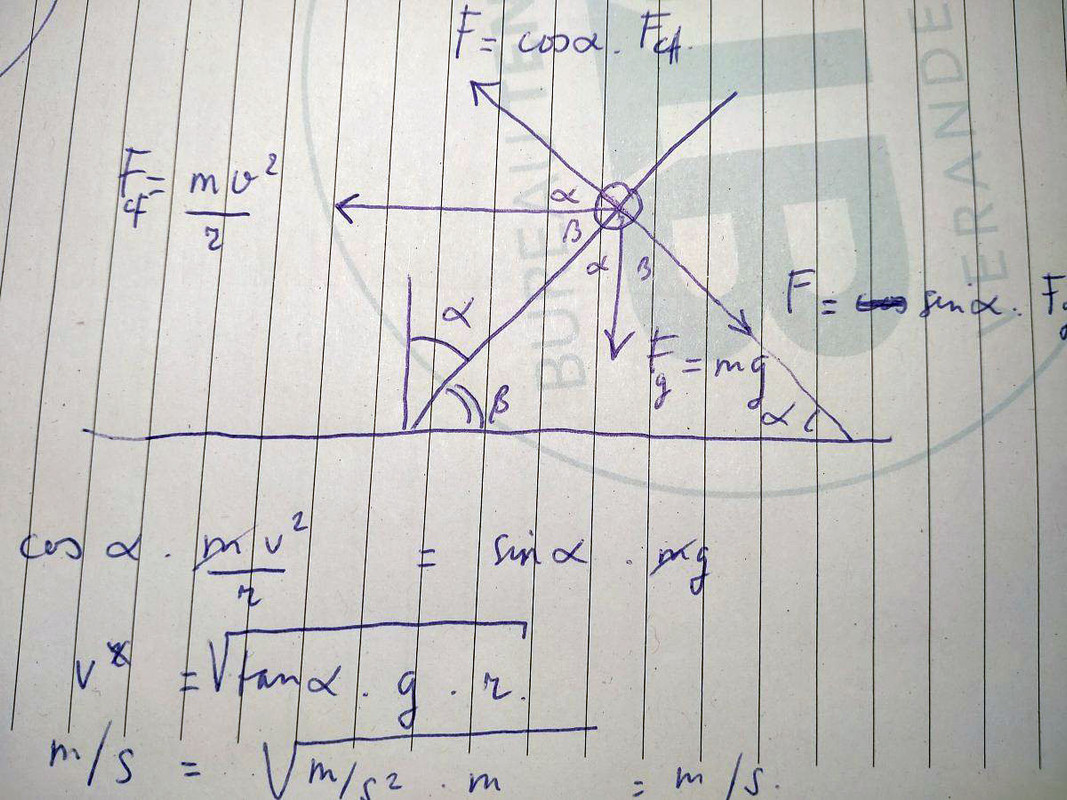 F = cosα . Fcf.
F cf = m v² / r
α
β
α β
α
β
F = sinα . Fg
Fg = mg
α
cos α . m v² / r = sin α . mg
v = √tanα . g . r.
m/s = √m/s² . m = m/s.